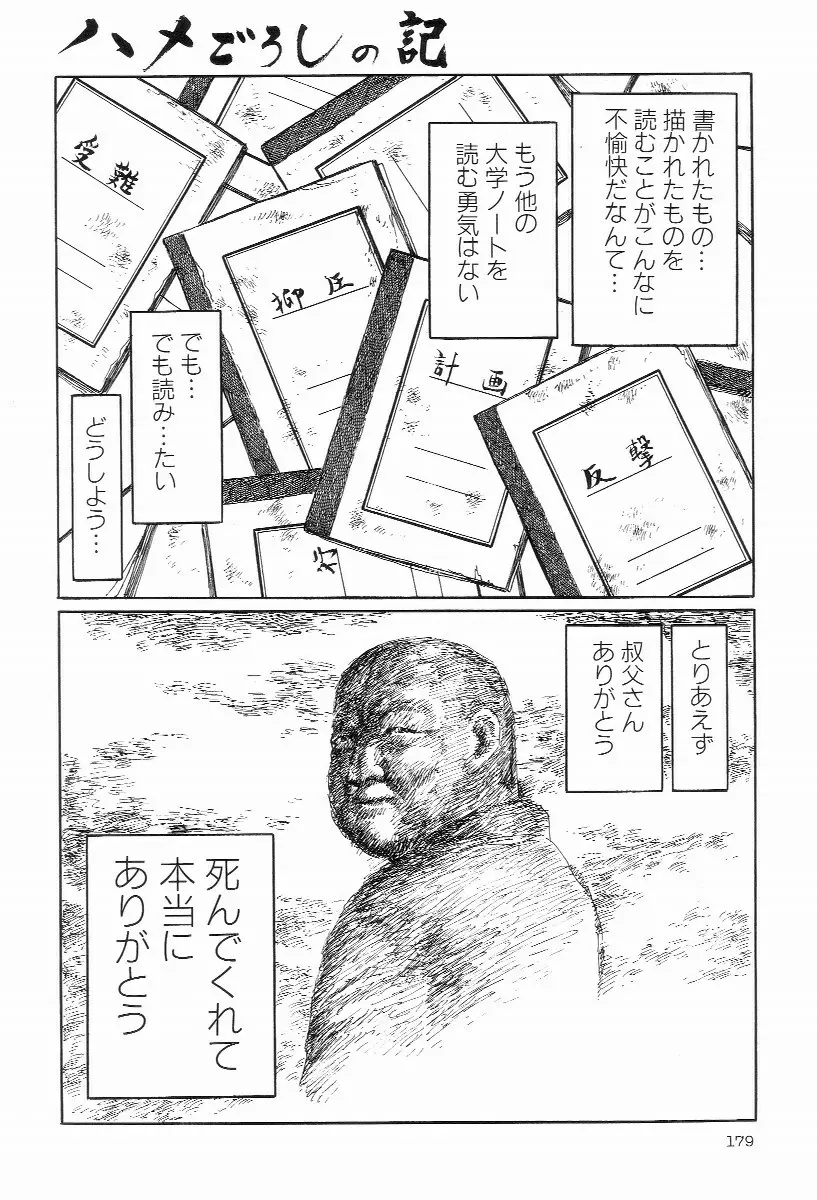 ハメごろしの記
書かれたもの…
描かれたものを
読むことがこんなに
不愉快だなんて…
もう他の
大学ノートを
読む勇気はない
受難
抑圧
計画
反撃
行
でも…
でも読み…たい
どうしよう…
とりあえず
叔父さん
ありがとう
死んでくれて
本当に
ありがとう
179